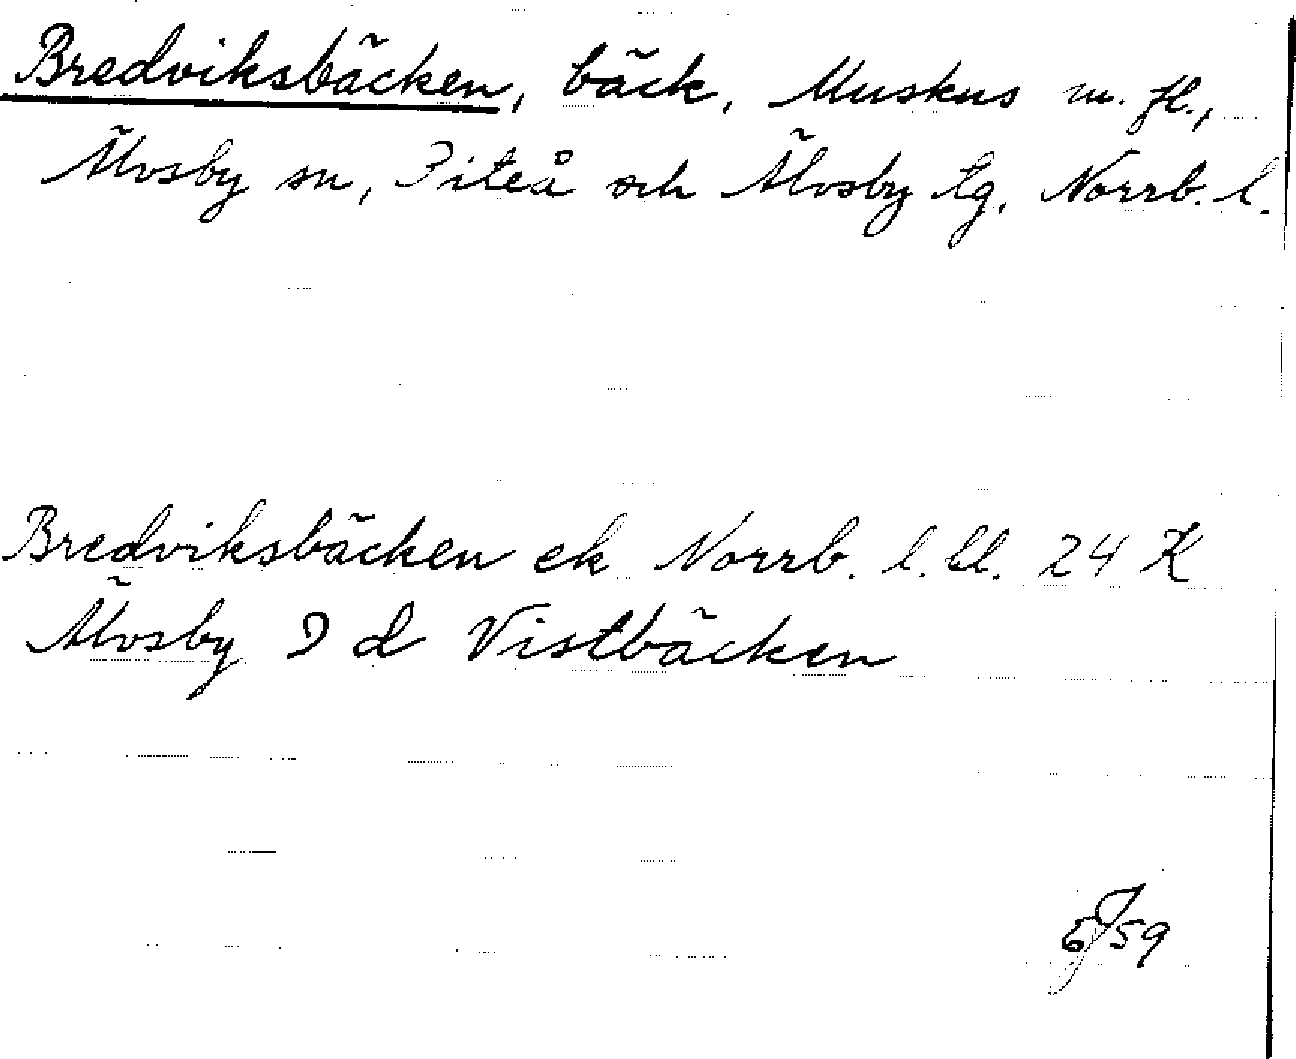 Bredviksbäcken, bäck, Muskus m. fl.,
Älvsby sn, Piteå och Älvsby tg, Norrb. l.
Bredviksbäcken ek Norrb. l. bl. 24 K
Älvsby 9 d Vistbäcken
6/59